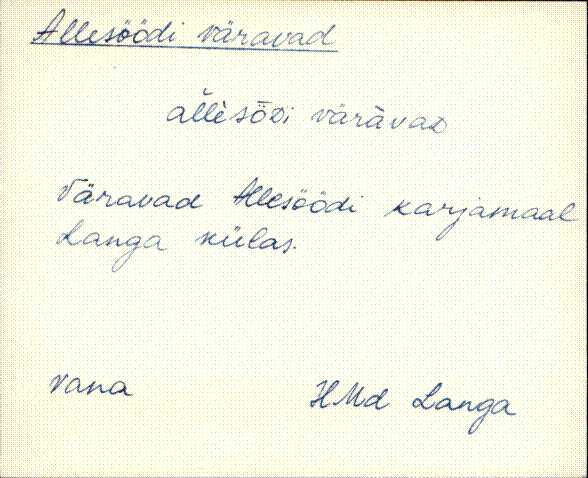 Allesöödi väravad
àl̆lèsȫᴅi väràvaᴅ
Väravad Allesöödi karjamaal
Langa külas.
vana HMd Langa